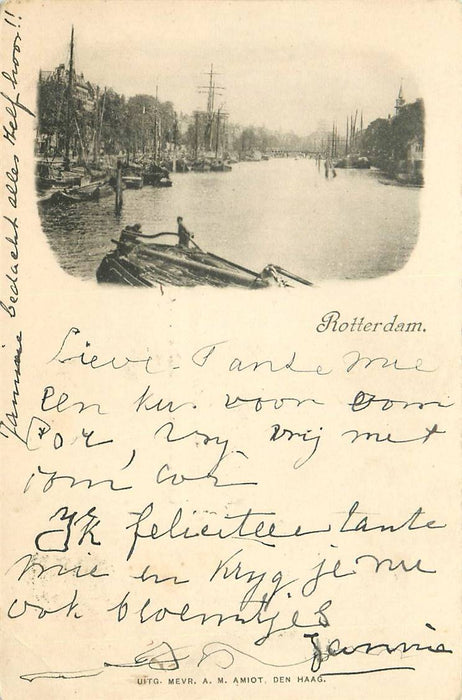 Jannie bedacht alles zelf hoor!!
Rotterdam.
Lieve Tante Mie
Een kus voor oom
Cor, vrij met
oom Cor
Ik feliciteer tante
mie en kryg je nu
ook bloemetjes
Jannie
UITG. MEVR. A. M. AMIOT, DEN HAAG.